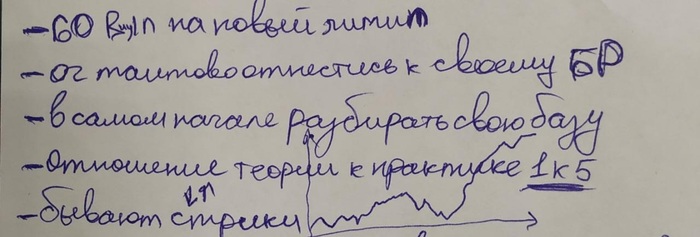 - 60 BuyIn на новый лимит
- ог таитово отнестись к своему БР
- в самом начале разбирать свою базу
- Отношение теории к практике 1к5
- бывают стрики